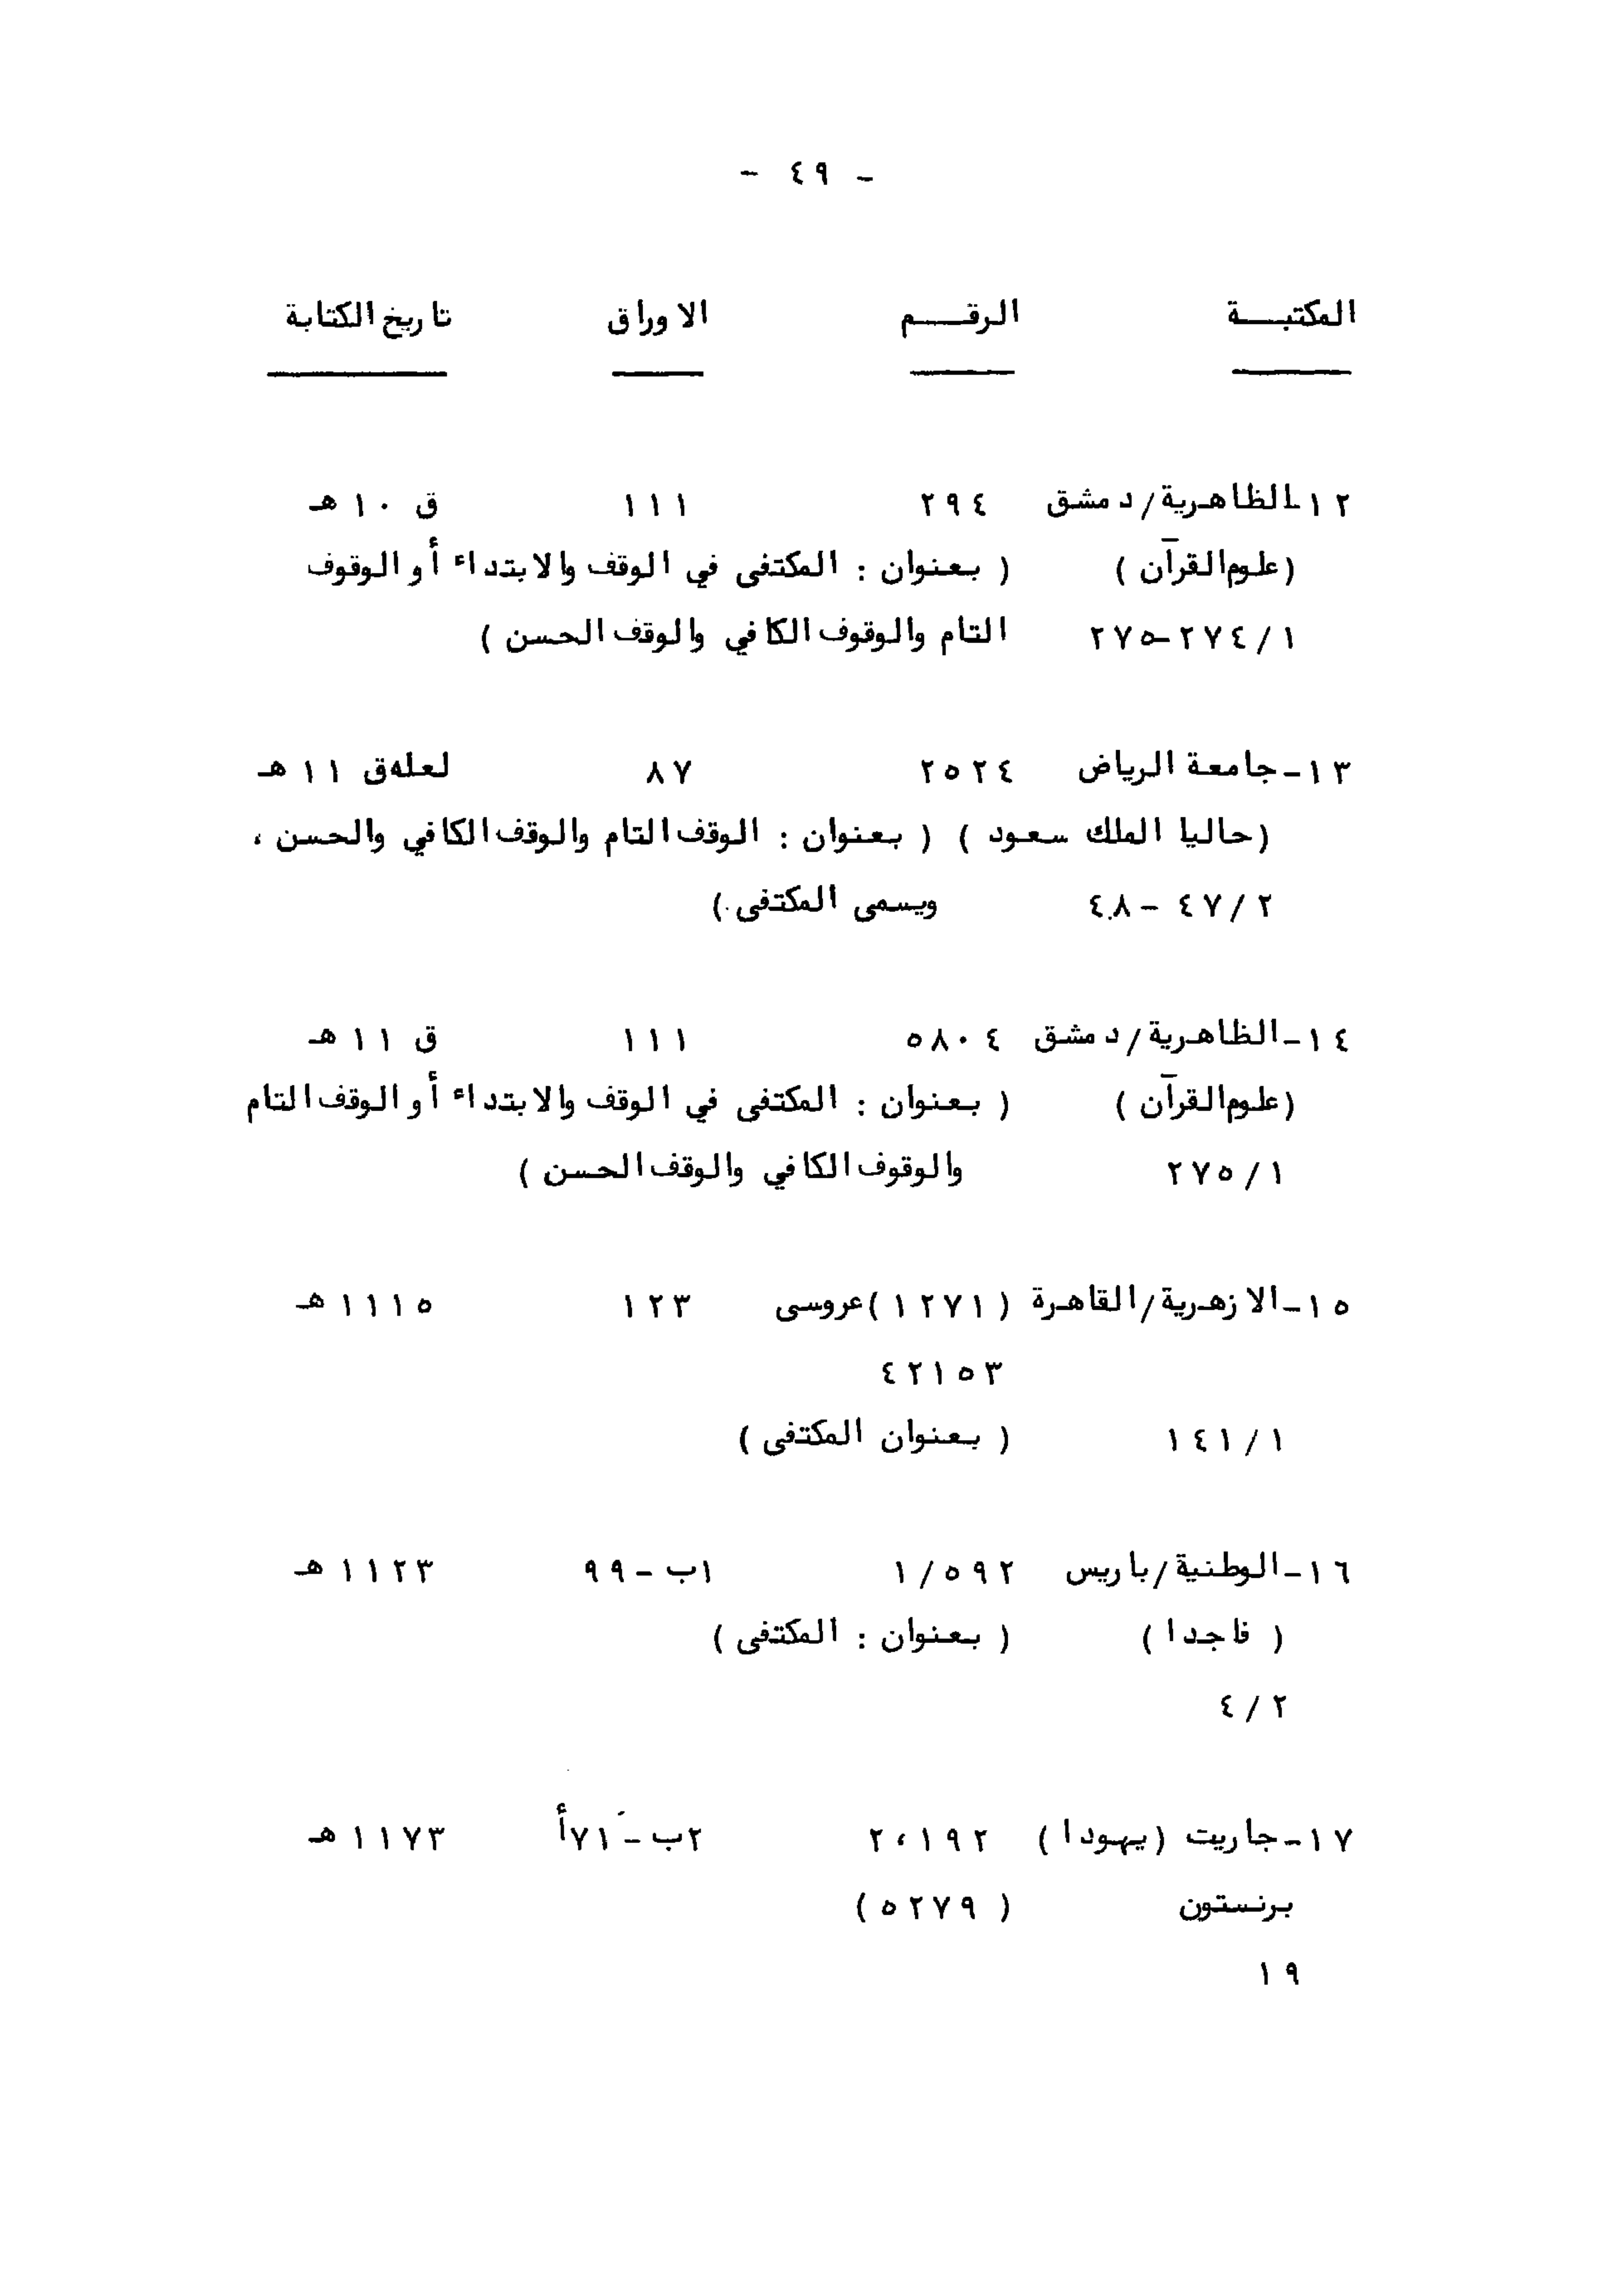 - ٤٩ -
المكتبـــة الرقـــم الاوراق تاريخ الكتابة
١٢- الظاهرية/دمشق ٢٩٤ ١١١ ق ١٠ هـ
(علوم القرآن) ( بعنوان : المكتفى في الوقف والابتداء أو الوقوف
١/٢٧٤-٢٧٥ التام والوقوف الكافي والوقف الحسن )
١٣- جامعة الرياض ٢٥٢٤ ٨٧ لعله ق ١١ هـ
(حاليا الملك سعود ) ( بعنوان : الوقف التام والوقف الكافي والحسن ،
٢/٤٧ - ٤٨ ويسمى المكتفى )
١٤- الظاهرية/دمشق ٥٨٠٤ ١١١ ق ١١ هـ
(علوم القرآن ) ( بعنوان : المكتفى في الوقف والابتداء أو الوقف التام
١/٢٧٥ والوقوف الكافي والوقف الحسن )
١٥- الازهرية/القاهرة (١٢٧١)عروسى ١٢٣ ١١١٥ هـ
٤٢١٥٣
١/١٤١ ( بعنوان المكتفى )
١٦- الوطنية/باريس ١/٥٩٢ ١ب - ٩٩ ١١٢٣ هـ
( فاجدا ) ( بعنوان : المكتفى )
٢/٤
١٧- جاريت (يهودا ) ٢،١٩٢ ٢ب - ٧١أ ١١٧٣ هـ
برنستون ( ٥٢٧٩ )
١٩